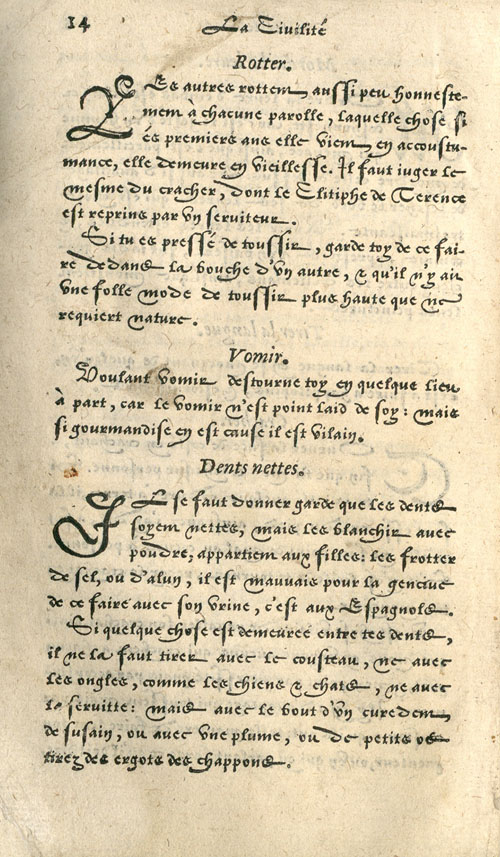 14
La Ciuilité
Rotter.
Les autres rottent aussi peu honneste-
ment à chacune parolle, laquelle chose si
és premiers ans elle vient en accoustu-
mance, elle demeure en vieillesse. Il faut iuger le
mesme du cracher, dont le Clitiphe de Terence
est reprins par vn seruiteur.
Si tu es pressé de toussir, garde toy de ce fai-
re dedans la bouche d'vn autre, & qu'il n'y ait
vne folle mode de toussir plus haute que ne
requiert nature.
Vomir.
Voulant vomir destourne toy en quelque lieu
à part, car le vomir n'est point laid de soy: mais
si gourmandise en est cause il est vilain.
Dents nettes.
Il se faut donner garde que les dents
soyent nettes, mais les blanchir avec
poudre, appartient aux filles: les frotter
de sel, ou d'alun, il est mauvais pour la gencive
de ce faire avec son vrine, c'est aux Espagnols.
Si quelque chose est demeuree entre tes dents,
il ne la faut tirer avec le cousteau, ne avec
les ongles, comme les chiens & chats, ne avec
la serviette: mais avec le bout d'vn curedent
de susain, ou avec vne plume, ou de petits os
tirez des ergots des chappons.